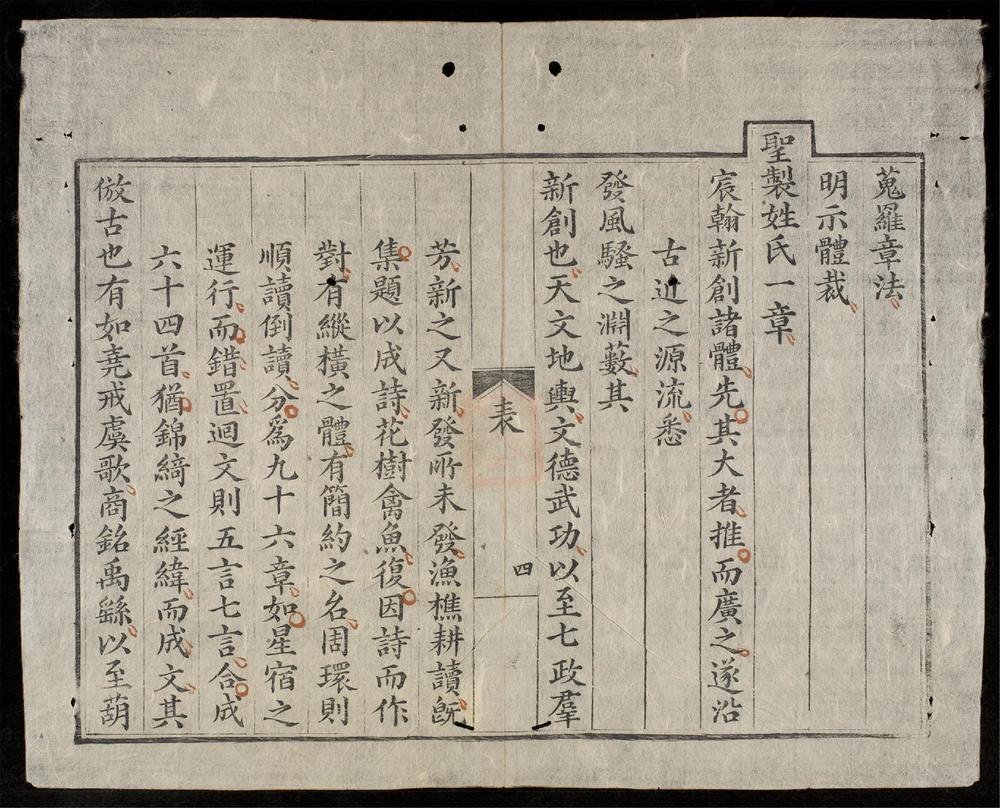 蒐羅章法
明示體裁
聖製姓氏一章
宸翰新創諸體先其大者推而廣之遂沿
古近之源流悉
發風騷之淵藪其
新創也天文地輿文德武功以至七政羣
表
四
芳新之又新發所未發漁樵耕讀既
集題以成詩花樹禽魚復因詩而作
對有縱橫之體有簡約之名周環則
順讀倒讀分爲九十六章如星宿之
運行而錯置迴文則五言七言合成
六十四首猶錦綺之經緯而成文其
倣古也有如堯戒虞歌商銘禹繇以至葫